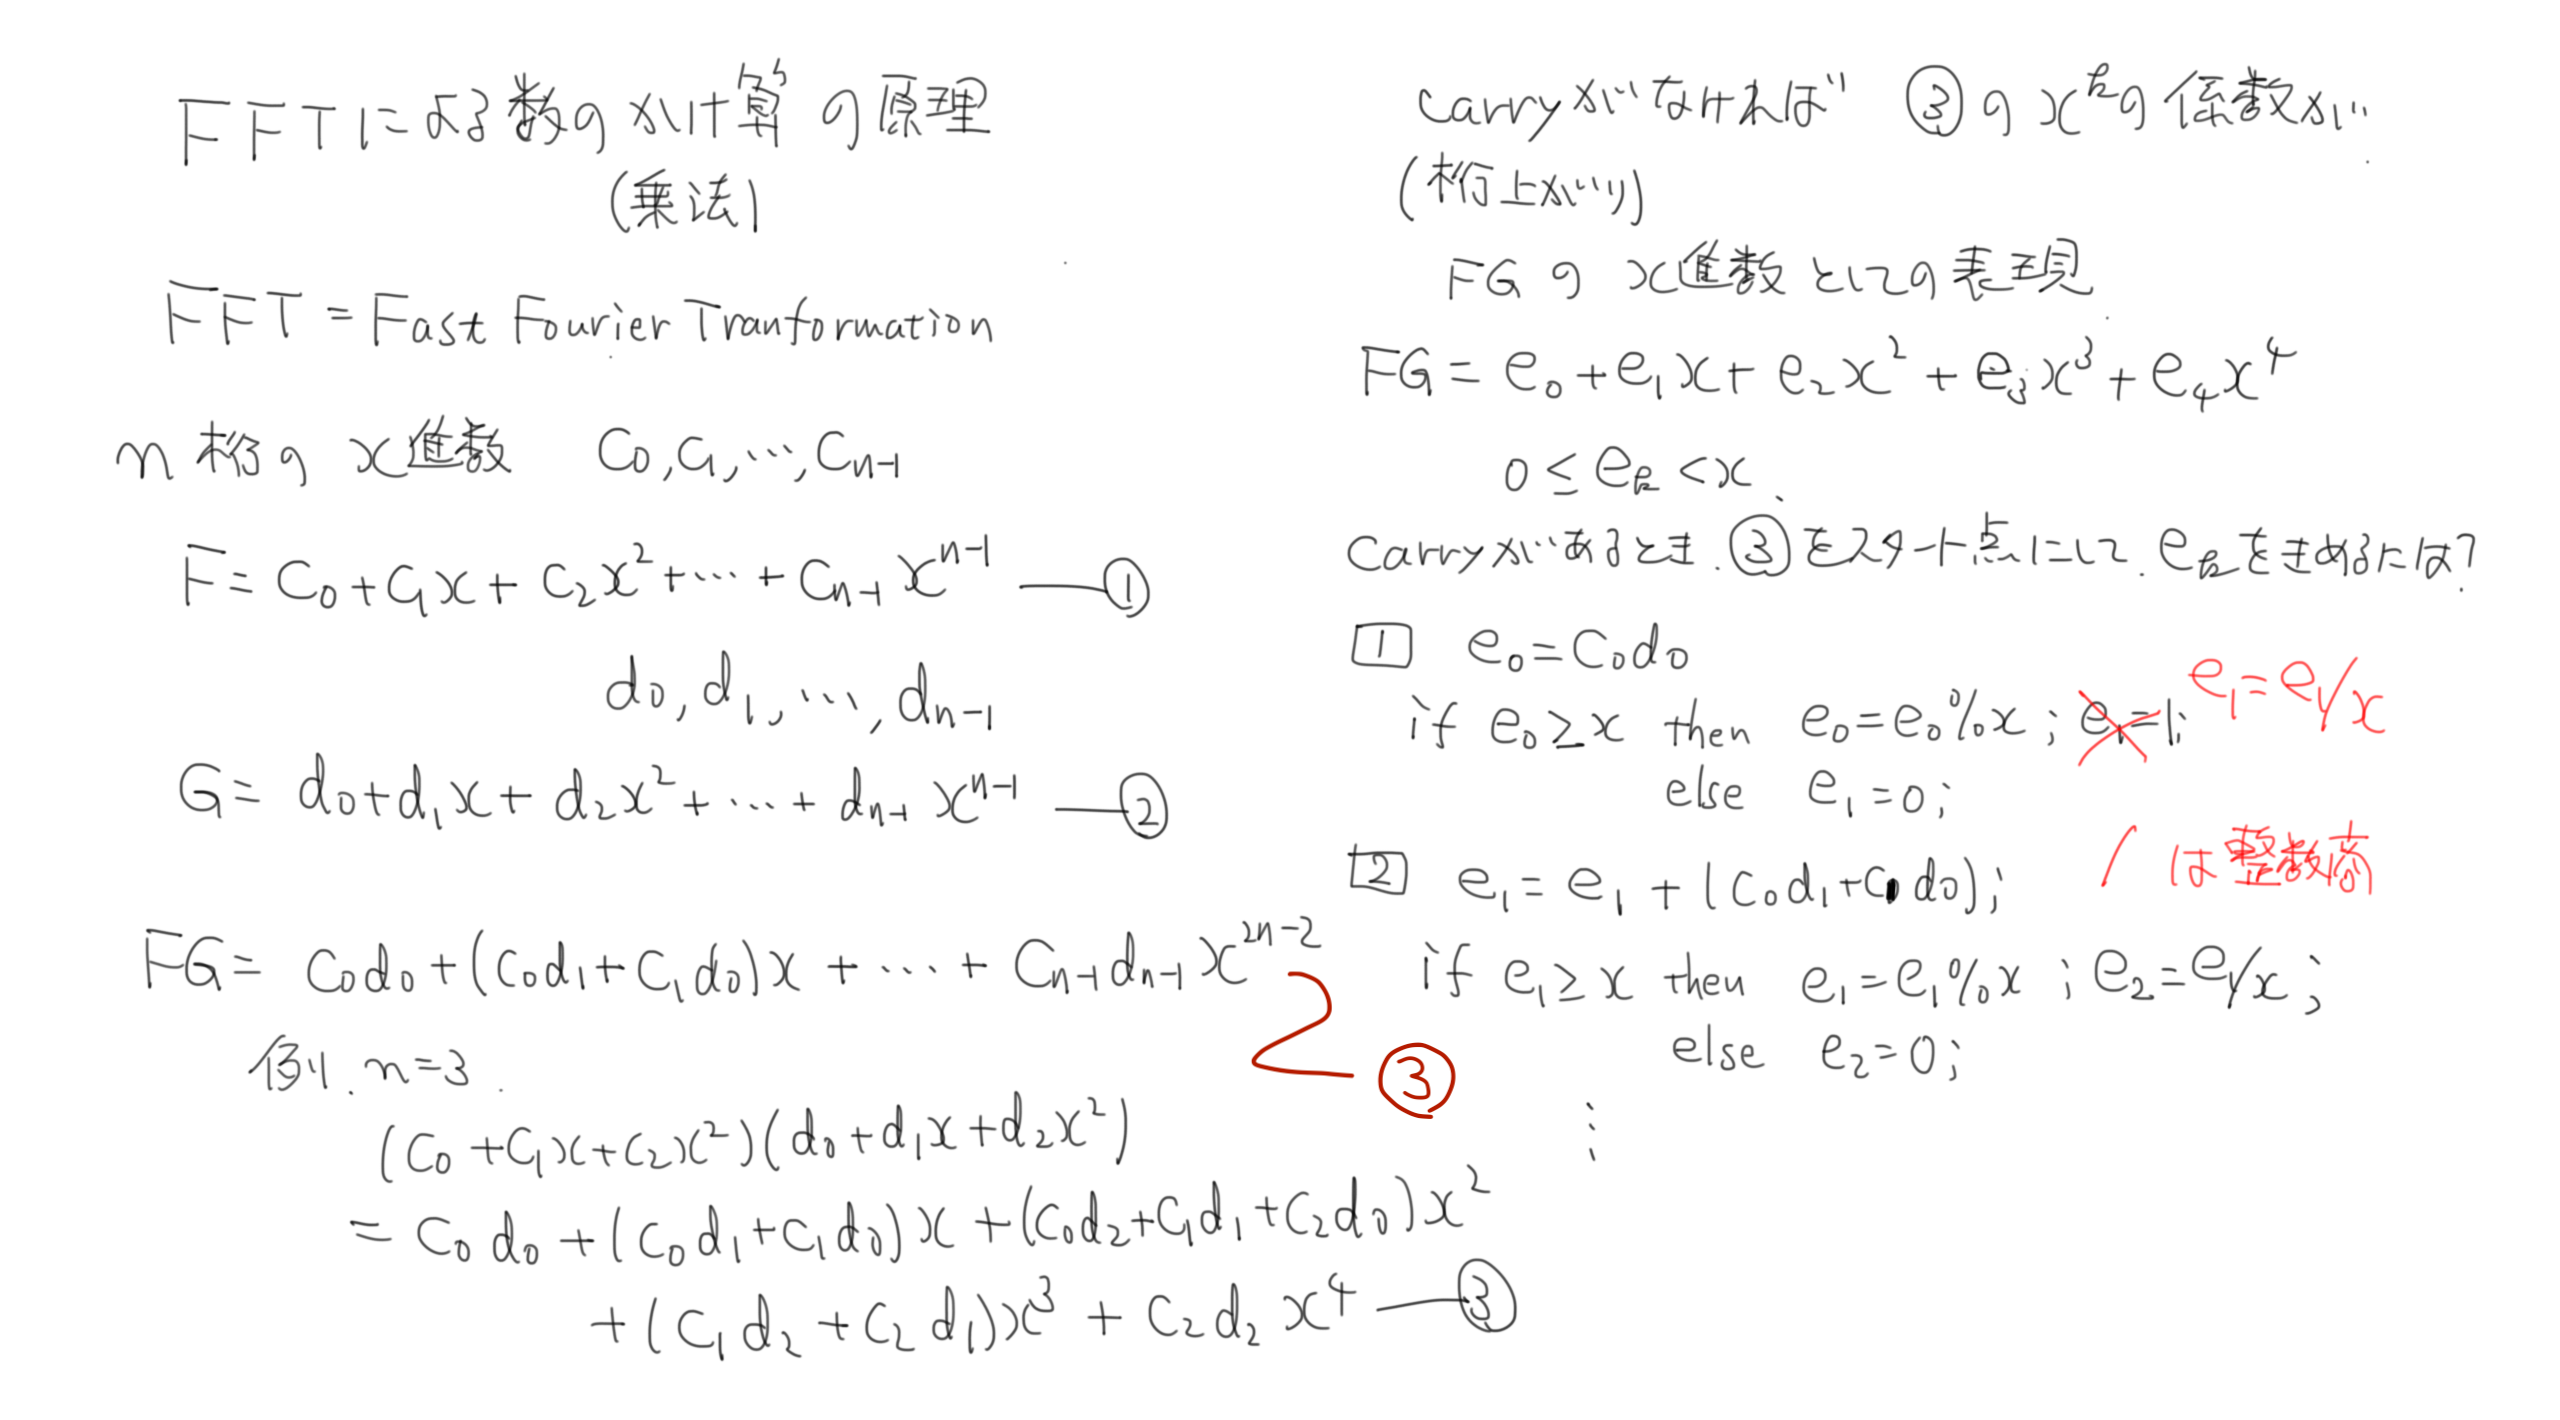 FFTによる数のかけ算の原理
(乗法)
FFT = Fast Fourier Tranformation
n桁の x進数 C₀, C₁, …, Cₙ₋₁
F = C₀ + C₁x + C₂x² + … + Cₙ₋₁xⁿ⁻¹ — ①
d₀, d₁, …, dₙ₋₁
G = d₀ + d₁x + d₂x² + … + dₙ₋₁xⁿ⁻¹ — ②
FG = C₀d₀ + (C₀d₁ + C₁d₀)x + … + Cₙ₋₁dₙ₋₁x²ⁿ⁻²
③
例. n=3
(C₀ + C₁x + C₂x²)(d₀ + d₁x + d₂x²)
= C₀d₀ + (C₀d₁ + C₁d₀)x + (C₀d₂ + C₁d₁ + C₂d₀)x²
+ (C₁d₂ + C₂d₁)x³ + C₂d₂x⁴ — ③
Carryがなければ ③の xᵏの係数が
(桁上がり)
FGの x進数としての表現
FG = e₀ + e₁x + e₂x² + e₃x³ + e₄x⁴
0 ≤ eₖ < x
Carryがあるとき. ③をスタート点にして. eₖをきめるには?
1 e₀ = C₀d₀
if e₀ ≥ x then e₀ = e₀%x ; e₁=1; e₁ = e₁/x
else e₁ = 0;
/ は整数商
2 e₁ = e₁ + (C₀d₁ + C₁d₀);
if e₁ ≥ x then e₁ = e₁%x ; e₂ = e₁/x ;
else e₂ = 0;
⋮